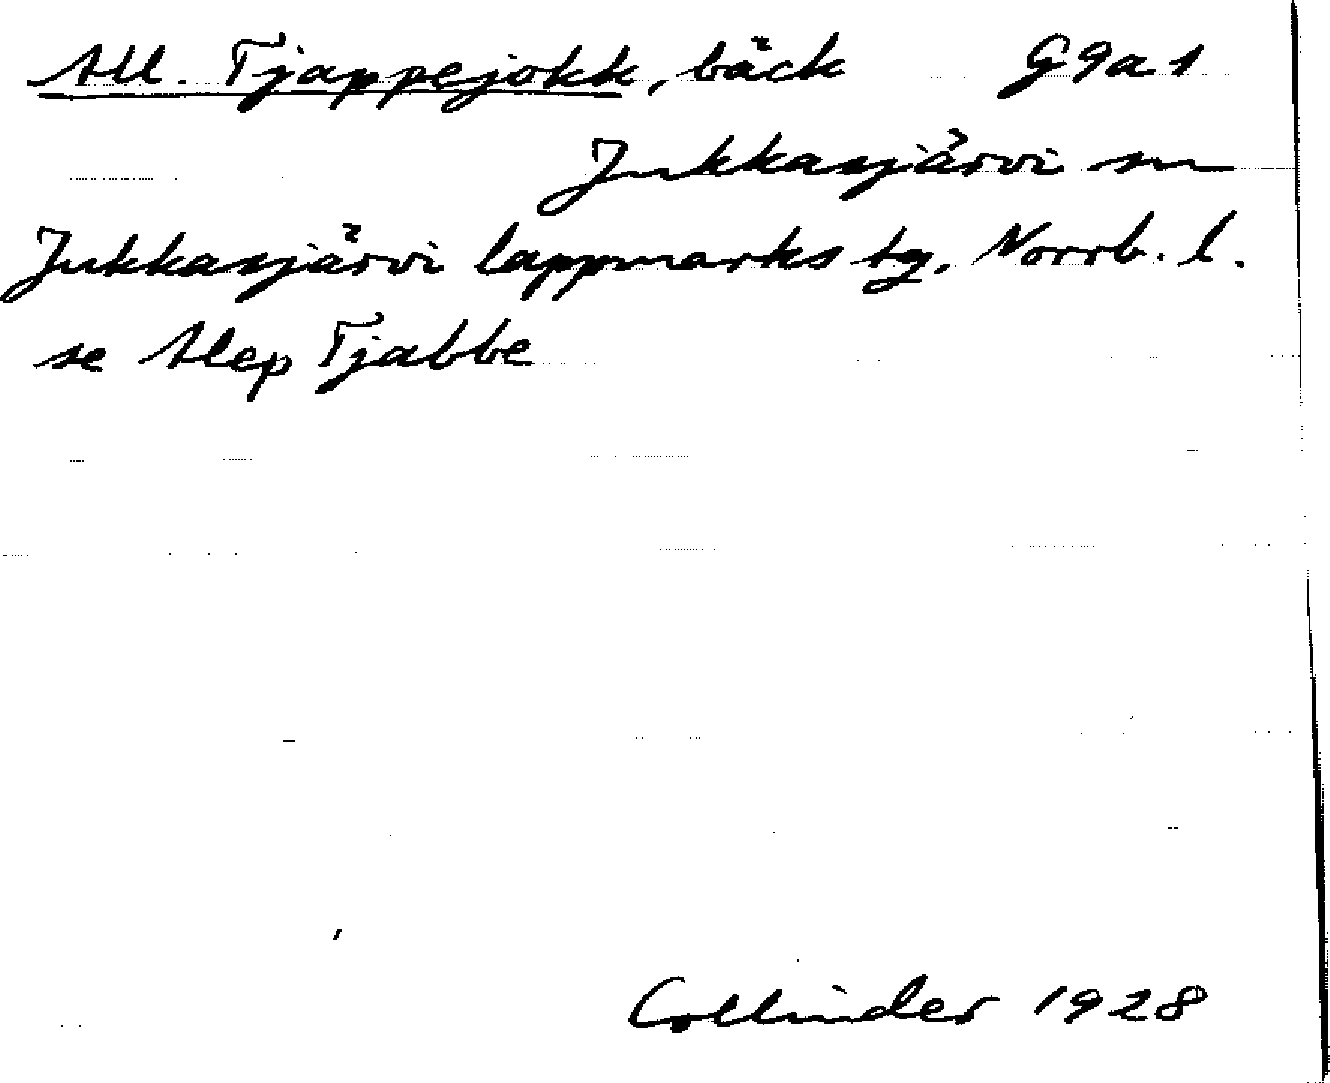 All. Tjappejokk, bäck G9a1
Jukkasjärvi sn
Jukkasjärvi lappmarks tg, Norrb. l.
se Alep Tjabbe
Collinder 1928